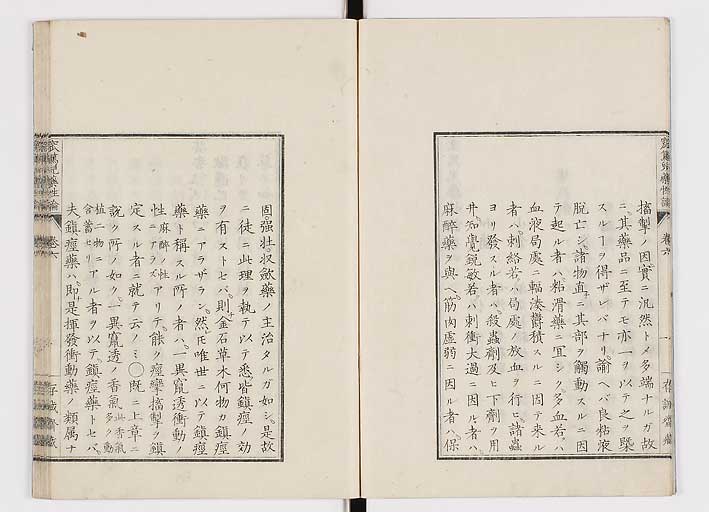 搐掣ノ因實ニ汎然トメ多端ナルガ故
ニ其藥品ニ至テモ亦一ヲ以テ之ヲ槩
スルヿヲ得ザレバナリ諭ヘバ良粘液
脱亡シ諸物直ニ其部ヲ觸動スルニ因
テ起ル者ハ粘滑藥ニ冝シク多血若ハ
血液局處ニ輻湊欝積スルニ因テ来ル
者ハ刺絡若ハ局處ノ放血ヲ行ヒ諸蟲
ヨリ發スル者ハ殺蟲劑及ヒ下劑ヲ用
井知覺鋭敏若ハ刺衝太過ニ因ル者ハ
麻醉藥ヲ與ヘ筋肉虚弱ニ因ル者ハ保
固强壮収斂藥ノ主治タルガ如シ是故
ニ徒ニ此理ヲ執テ以テ悉皆鎮痙ノ効
ヲ有ストセバ則金石草木何物カ鎮痙
藥ニアラザラン然𪜈唯世ニ以テ鎮痙
藥ト稱スル所ノ者ハ一異竄透衝動ノ
性麻醉ノ性ニアラズアリテ能ク痙攣搐掣ヲ鎮
定スル者ニ就テ云ノミ〇既ニ上章ニ
説ク所ノ如ク一異竄透ノ香氣此香氣多ク動
植二物ニ含蓄セリニアル者ヲ以テ鎮痙藥トセバ
夫鎮痙藥ハ即是揮發衝動藥ノ類属ナ
卷六
一
卷六